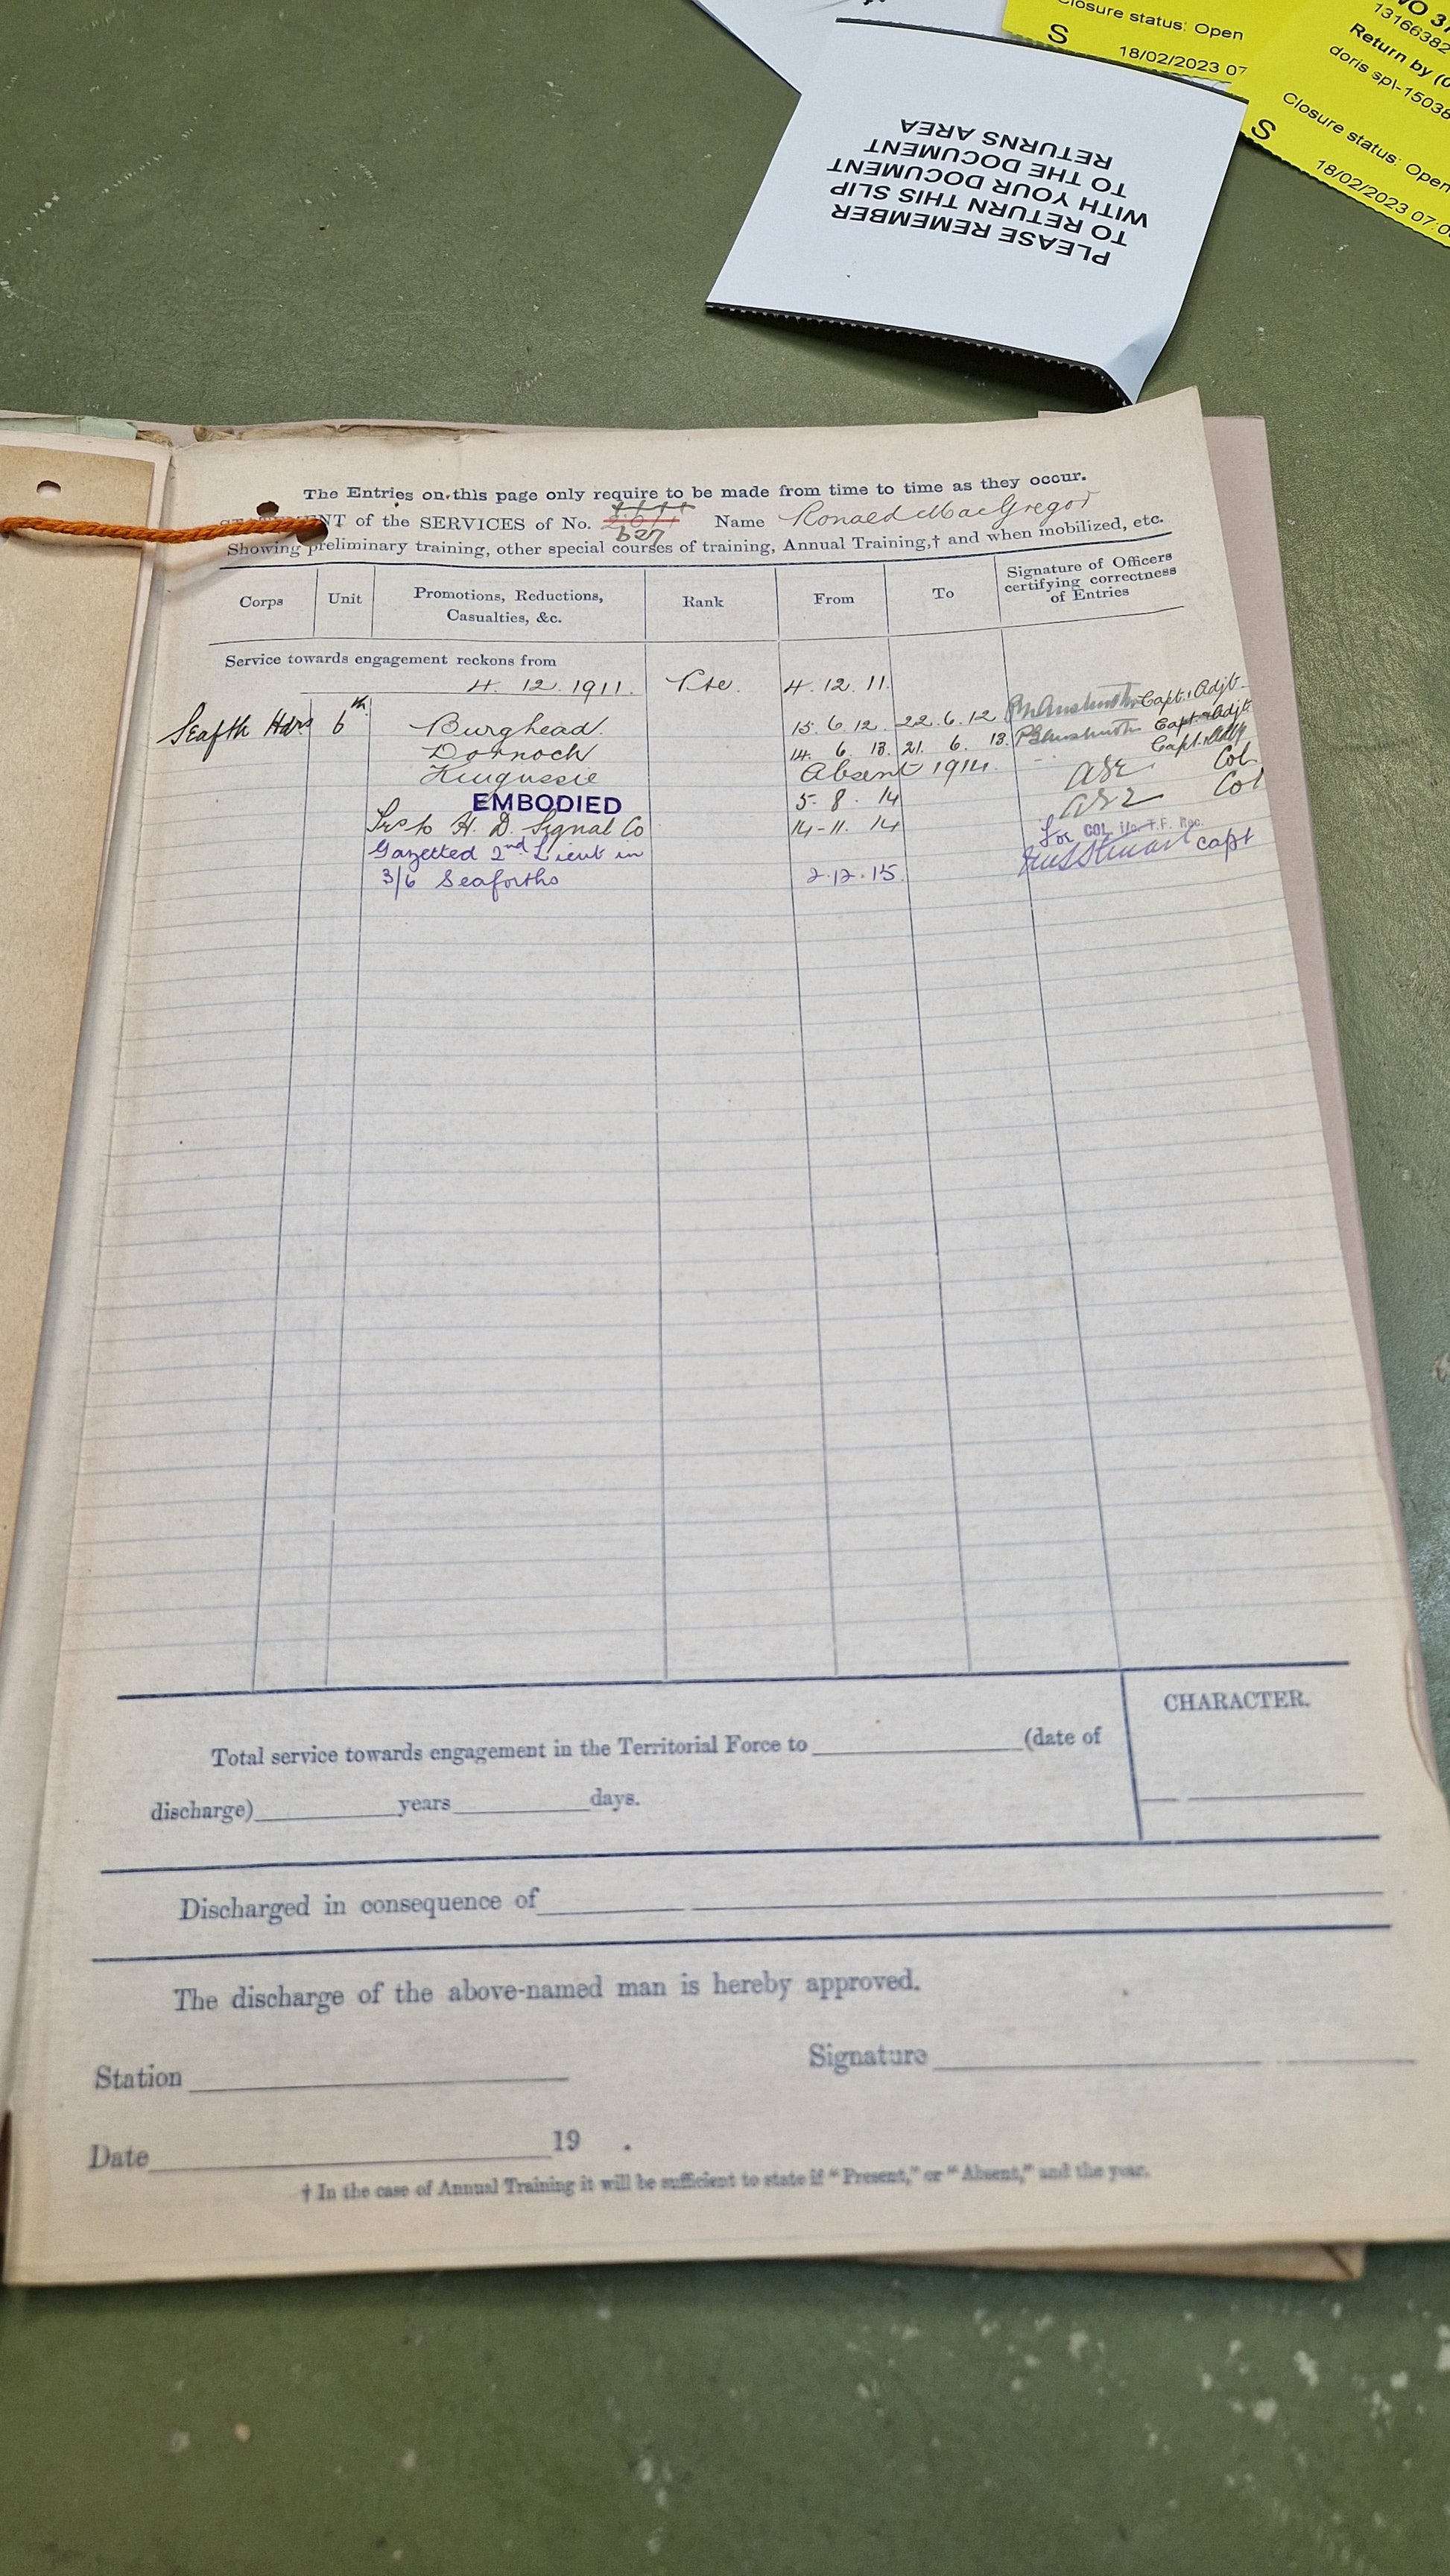 Closure status: Open
S
18/02/2023 07
13166382
Return by (0
doris spl-15038
Closure status: Open
S
18/02/2023 07:0
PLEASE REMEMBER
TO RETURN THIS SLIP
WITH YOUR DOCUMENT
TO THE DOCUMENT
RETURNS AREA
The Entries on this page only require to be made from time to time as they occur.
of the SERVICES of No. 627 Name Ronald MacGregor
Showing preliminary training, other special courses of training, Annual Training,† and when mobilized, etc.
Corps Unit Promotions, Reductions, Casualties, &c. Rank From To Signature of Officers certifying correctness of Entries
Service towards engagement reckons from
4. 12. 1911. Pte. 4. 12. 11.
Seafth Hdrs 6th Burghead. 15. 6. 12. 22. 6. 12 Capt. & Adjt.
Dornoch 14. 6. 13. 21. 6. 13. Capt. & Adjt.
Kingussie Absent 1914. Capt. & Adjt
EMBODIED 5. 8. 14 Col
H. D. Signal Co 14-11. 14 Col
Gazetted 2nd Lieut in for COL. i/c. T.F. Rec.
3/6 Seaforths 2.12.15. Stuart capt
CHARACTER.
Total service towards engagement in the Territorial Force to (date of
discharge) years days.
Discharged in consequence of
The discharge of the above-named man is hereby approved.
Station Signature
Date 19 .
† In the case of Annual Training it will be sufficient to state if "Present," or "Absent," and the year.